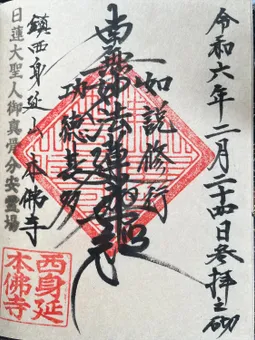 令和六年二月二十四日参拝之砌
如説修行
南無妙法蓮華経
功徳甚多
鎮西身延山本佛寺
日蓮大聖人御真骨分安霊場
西身延
本佛寺